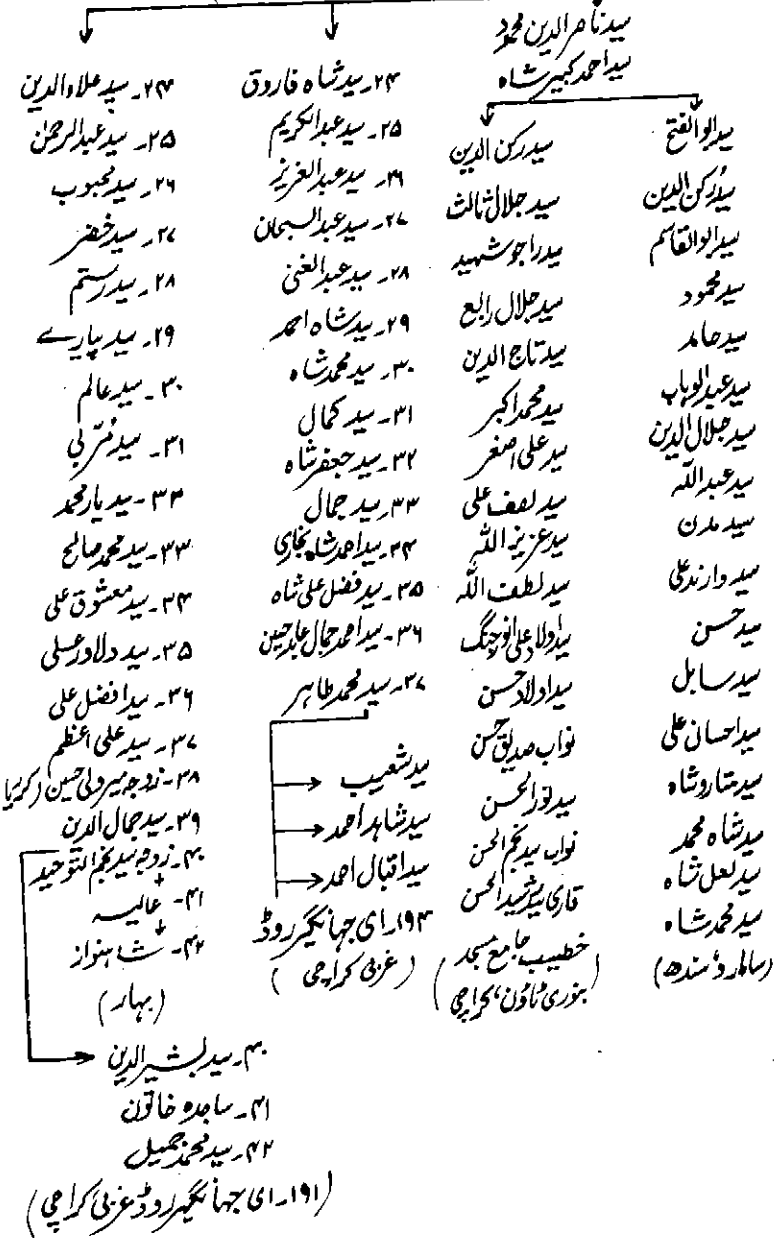 سید ناصر الدین محمود
سید احمد کبیر شاہ
سید ابو الفتح
سید رکن الدین
سید ابو القاسم
سید محمود
سید حامد
سید عبد الوہاب
سید جلال الدین
سید عبد اللہ
سید مدن
سید وارند علی
سید حسن
سید سابل
سید احسان علی
سید ستار و شاہ
سید شاہ محمد
سید لعل شاہ
سید محمد شاہ
(سالارو، سندھ)
سید رکن الدین
سید جلال ثالث
سید راجو شہید
سید جلال رابع
سید تاج الدین
سید محمد اکبر
سید علی اصغر
سید لطف علی
سید عزیز اللہ
سید لطف اللہ
سید اولاد علی انور جنگ
سید اولاد حسن
نواب صدیق حسن
سید نور الحسن
نواب سید نجم الحسن
قاری سید رشید الحسن
خطیب جامع مسجد
(بنوری ٹاؤن، کراچی)
۲۴۔ سید شاہ فاروق
۲۵۔ سید عبد الکریم
۲۶۔ سید عبد العزیز
۲۷۔ سید عبد السبحان
۲۸۔ سید عبد الغنی
۲۹۔ سید شاہ احمد
۳۰۔ سید محمد شاہ
۳۱۔ سید کمال
۳۲۔ سید جعفر شاہ
۳۳۔ سید جمال
۳۴۔ سید احمد شاہ بخاری
۳۵۔ سید فضل علی شاہ
۳۶۔ سید احمد جمال عابد حسین
۳۷۔ سید محمد طاہر
سید شعیب
سید شاہد احمد
سید اقبال احمد
۱۹۴۔ ای جہانگیر روڈ
(غربی کراچی)
۲۴۔ سید علاء الدین
۲۵۔ سید عبد الرحمٰن
۲۶۔ سید محبوب
۲۷۔ سید خضر
۲۸۔ سید رستم
۲۹۔ سید پیارے
۳۰۔ سید عالم
۳۱۔ سید مُرّبی
۳۲۔ سید یار محمد
۳۳۔ سید محمد صالح
۳۴۔ سید معشوق علی
۳۵۔ سید دلاور علی
۳۶۔ سید افضل علی
۳۷۔ سید علی اعظم
۳۸۔ زوجہ میر ولی حسین (کریما
۳۹۔ سید جمال الدین
۴۰۔ زوجہ سید نجم التوحید
۴۱۔ عالیہ
۴۲۔ شاہنواز
(بہار)
۴۰۔ سید بشیر الدین
۴۱۔ ساجدہ خاتون
۴۲۔ سید محمد جمیل
(۱۹۱۔ ای جہانگیر روڈ غربی کراچی)